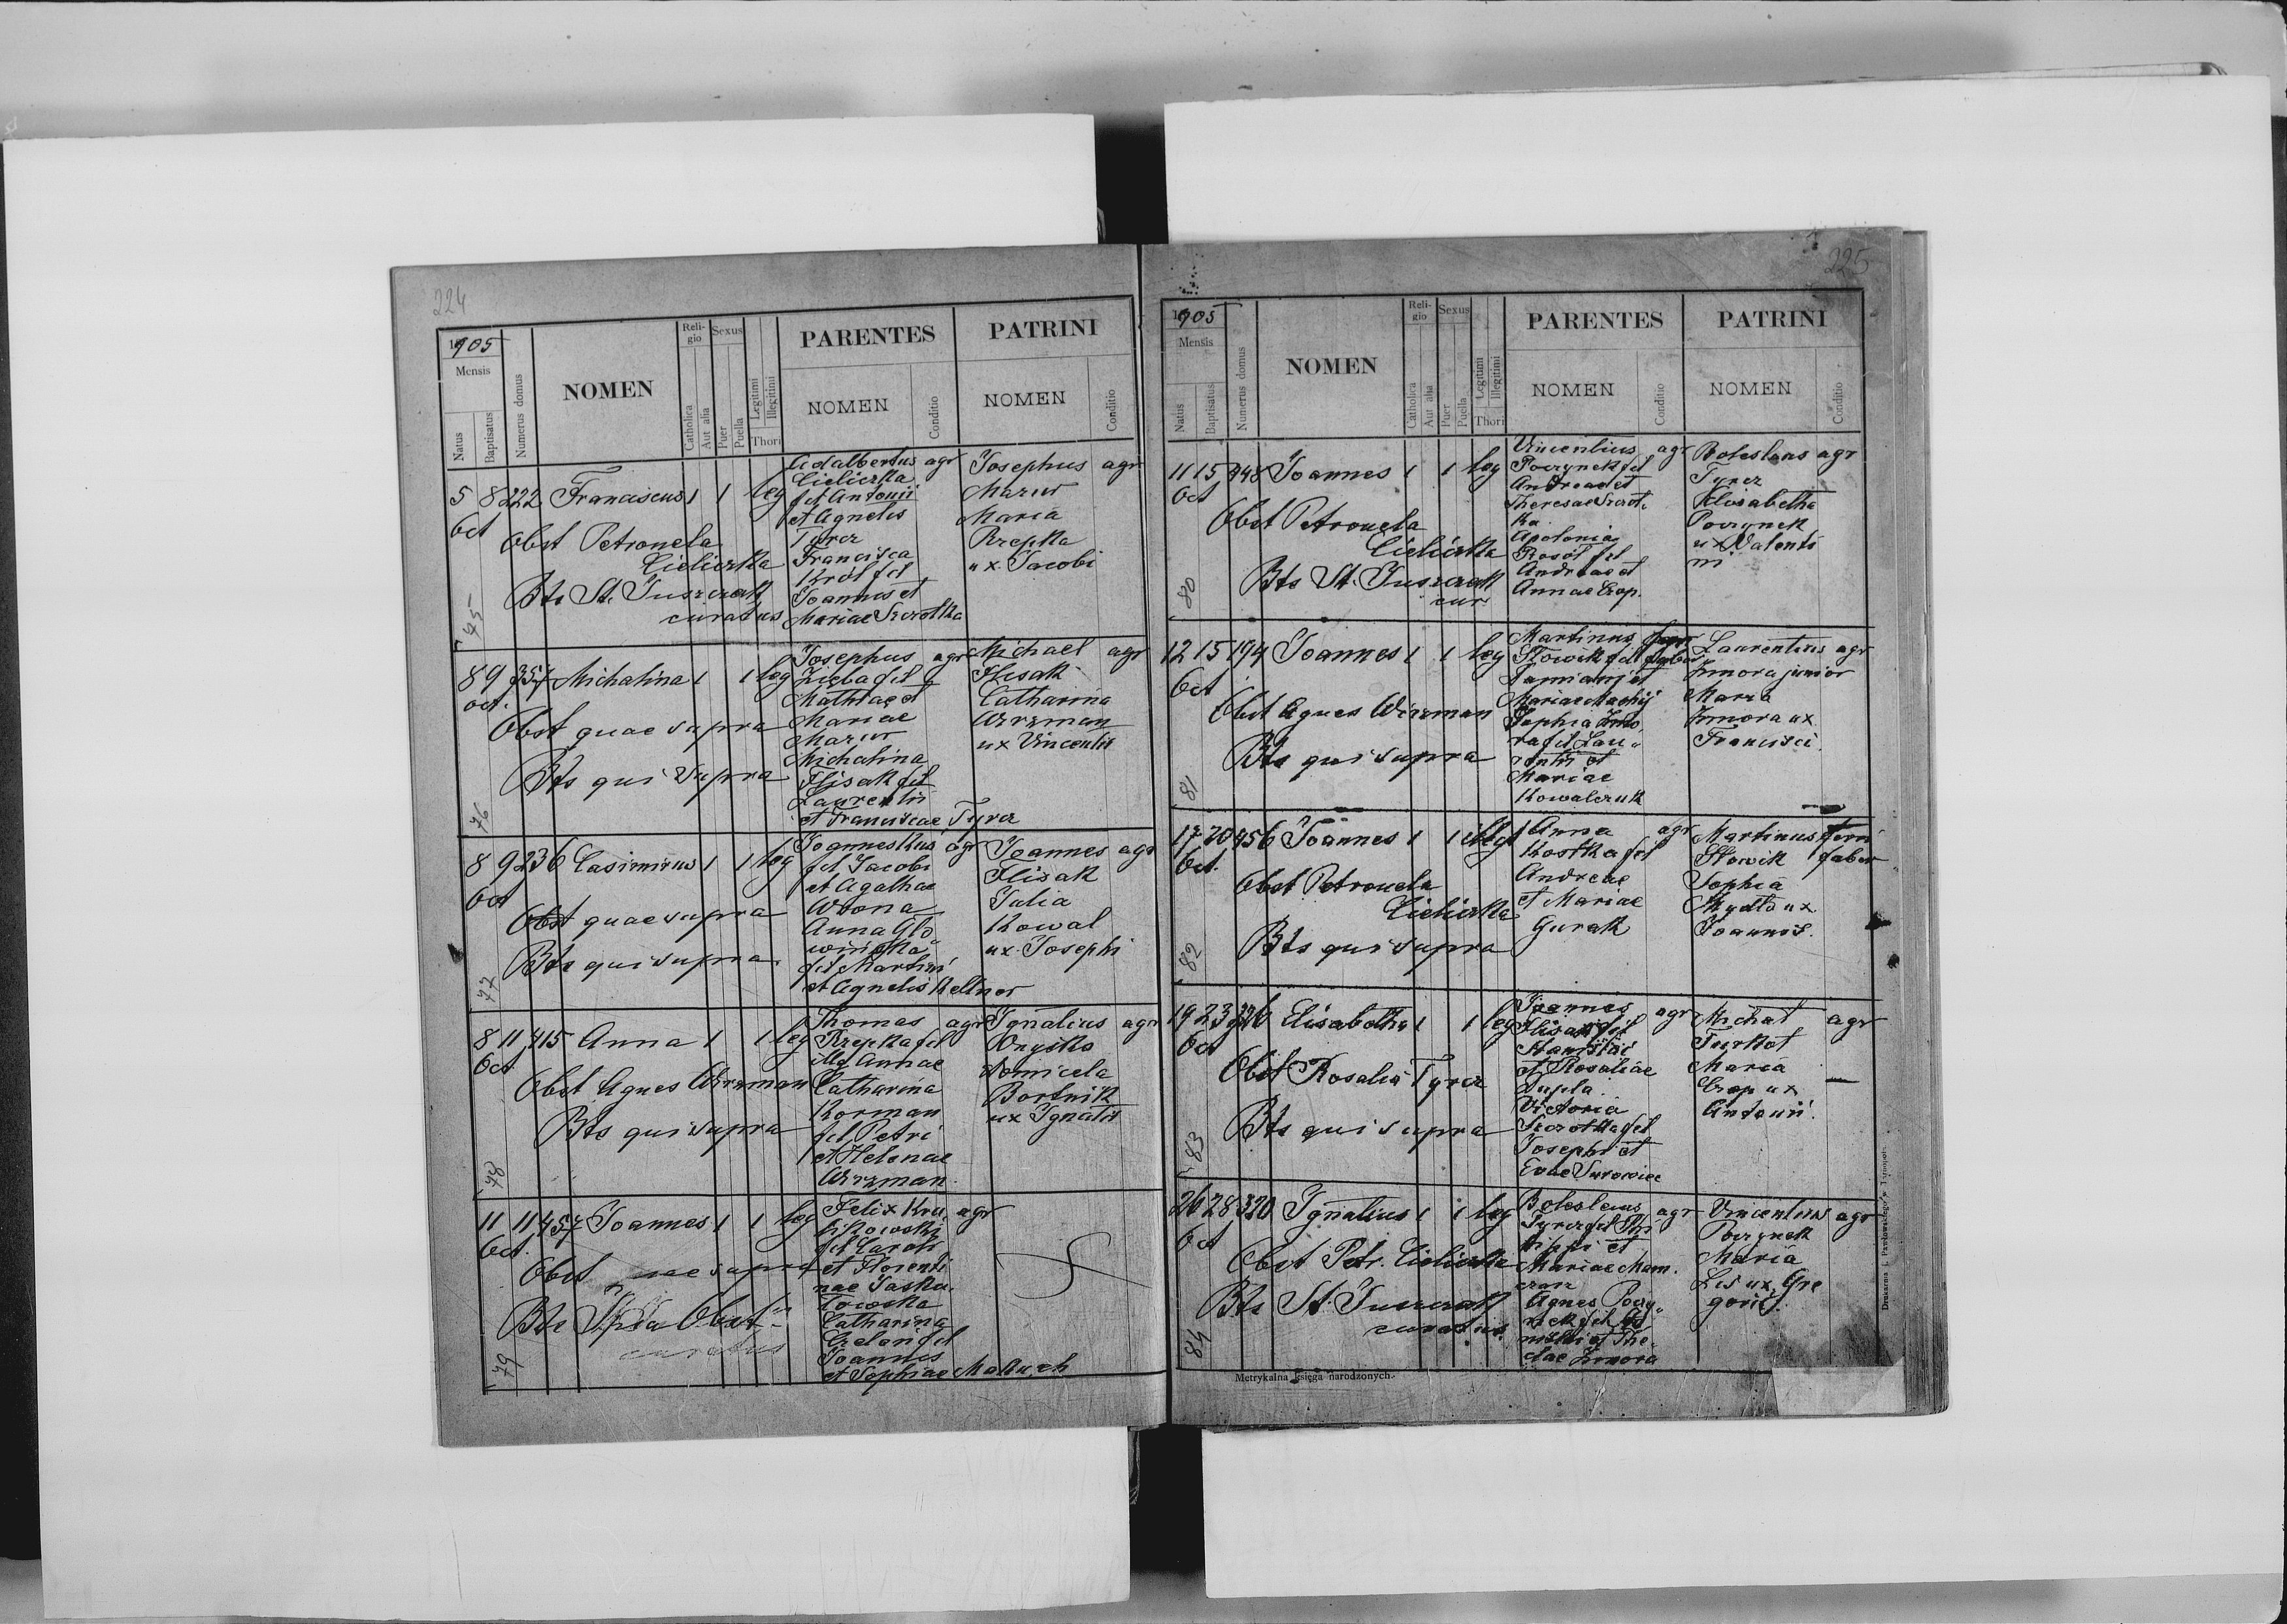 224
1905
Mensis
Natus
Baptisatus
Numerus domus
NOMEN
Reli-
gio
Catholica
Aut alia
Sexus
Puer
Puella
Legitimi
Illegitimi
Thori
PARENTES
NOMEN
Conditio
PATRINI
NOMEN
Conditio
5 8 222 Franciscus 1 1 leg
Oct
Obst Petronela
Cieliczka
Bts St. Juszczak
curatus
75
Adalbertus agr
Cieliczka
fil Antonii
et Agnetis
Tyrcz
Francisca
Król fil
Joannis et
Mariae Szczotka
Josephus agr
Mazur
Maria
Rzepka
ux Jacobi
8 9 357 Michalina 1 1 leg
oct.
Obst quae supra
Bts qui supra
76
Josephus agr
Zieba fil
Mathiae et
Mariae
Mazur
Michalina
Flisak fil
Laurentii
et Franciscae Tyrcz
Michael agr
Flisak
Catharina
Wizman
ux Vincentii
8 9 236 Casimirus 1 1 leg
Oct
Obst quae supra
Bts qui supra
77
Joannes Kus agr
fil Jacobi
et Agathae
Wrona
Anna Glo
winska
fil Martini
et Agnetis Keltner
Joannes agr
Flisak
Julia
Kowal
ux Josephi
8 11 415 Anna 1 1 leg
Oct
Obst Agnes Wizman
Bts qui supra
78
Thomas agr
Rzepka fil
ill. Annae
Catharina
Korman
fil Petri
et Helenae
Wizman
Ignatius agr
Onysko
Domicela
Bortnik
ux Ignatii
11 11 457 Joannes 1 1 leg
Oct.
Obst quae supra
Bts Ipsa Obst
curatus
79
Felix Kru agr
fil Caroli
et Florenti
nae
Catharina
fil
Joannis
et Sophiae
225
1905
Mensis
Natus
Baptisatus
Numerus domus
NOMEN
Reli-
gio
Catholica
Aut alia
Sexus
Puer
Puella
Legitimi
Illegitimi
Thori
PARENTES
NOMEN
Conditio
PATRINI
NOMEN
Conditio
11 15 448 Joannes 1 1 leg
Oct
Obst Petronela
Cieliczka
Bts St. Juszczak
cur
80
Vincentius agr
Poczynek fil
Andreae et
Theresae Szczot.
ka
Apolonia
Rosół fil
Andreae et
Annae Czop.
Boleslaus agr
Tyrcz
Elisabetha
Poczynek
ux Valenti
ni
12 15 194 Joannes 1 1 leg
Oct
Obst Agnes Wizman
Bts qui supra
81
Martinus
Słowik fil faber
Damiani et
Mariae
Sophia Zmo
ra fil Lau
rentii et
Mariae
Kowalczuk
Laurentius agr
Zmora junior
Maria
Zmora ux
Francisci
17 20 456 Joannes 1 1 illeg
Oct.
Obst Petronela
Cieliczka
Bts qui supra
82
Anna agr
Kostka fil
Andreae
et Mariae
Gurak
Martinus ferri
Słowik faber
Sophia
Mydło ux
Joannis.
19 23 326 Elisabetha 1 1 leg
Oct
Obst Rosalia Tyrcz
Bts qui supra
83
Joannes agr
Flisak fil
Stanislai
et Rosaliae
Dupla
Victoria
Szczotka fil
Josephi et
Evae Surowiec
Michał agr
Turkot
Maria
Czop ux
Antonii.
26 28 320 Ignatius 1 1 leg
Oct
Obst Petr. Cieliczka
Bts St. Juszczak
curatus
84
Boleslaus agr
Tyrcz fil Phi
lippi et
Mariae Mam.
czar
Agnes Poczy
nek fil
et The
clae Zmora
Vincentius agr
Poczynek
Maria
Lis ux Gre
gorii.
Metrykalna księga narodzonych.